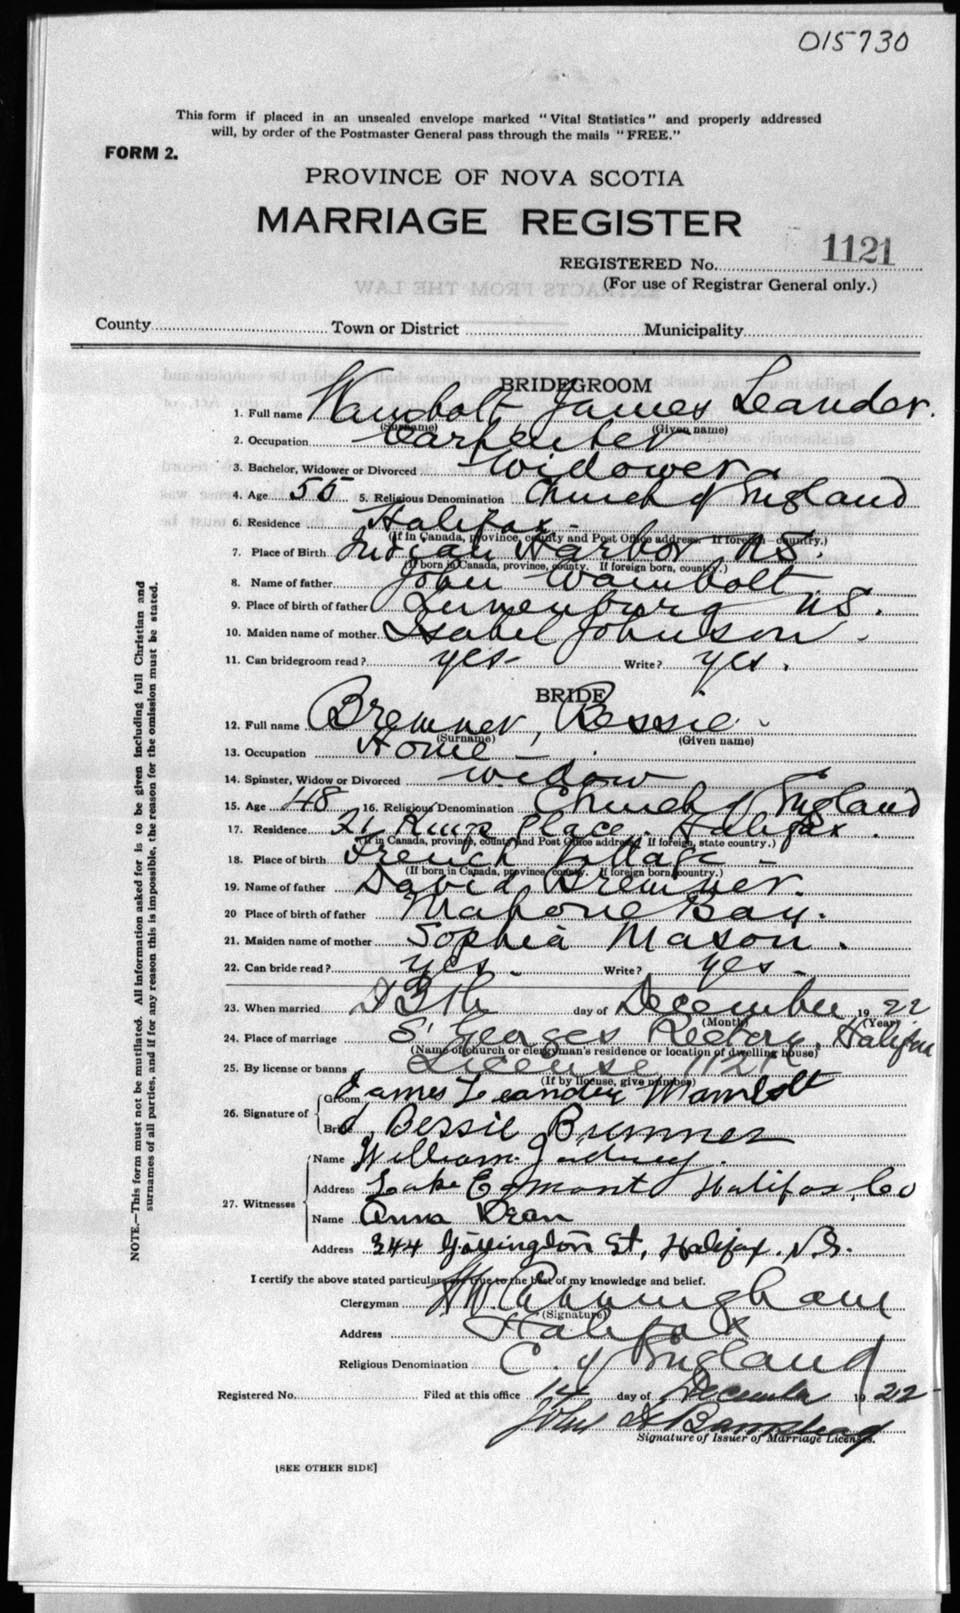 015730
This form if placed in an unsealed envelope marked "Vital Statistics" and properly addressed
will, by order of the Postmaster General pass through the mails "FREE."
FORM 2.
PROVINCE OF NOVA SCOTIA
MARRIAGE REGISTER
REGISTERED No. 1121
(For use of Registrar General only.)
County Town or District Municipality
BRIDEGROOM
1. Full name Wambolt James Leander.
(Surname) (Given name)
2. Occupation Carpenter
3. Bachelor, Widower or Divorced Widower
4. Age 55 5. Religious Denomination Church of England
6. Residence Halifax -
(If in Canada, province, county and Post Office address. If foreign - country.)
7. Place of Birth Indian Harbor N.S.
(If born in Canada, province, county. If foreign born, country.)
8. Name of father John Wambolt
9. Place of birth of father Lunenburg N.S.
10. Maiden name of mother Isabel Johnson -
11. Can bridegroom read? yes- Write? yes.
BRIDE
12. Full name Bremner, Bessie -
(Surname) (Given name)
13. Occupation Home -
14. Spinster, Widow or Divorced widow
15. Age 48 16. Religious Denomination Church of England
17. Residence 21 Kings Place. Halifax.
(If in Canada, province, county and Post Office address. If foreign, state country.)
18. Place of birth French Village -
(If born in Canada, province, county. If foreign born, country.)
19. Name of father David Bremner.
20 Place of birth of father Mahone Bay.
21. Maiden name of mother Sophia Mason.
22. Can bride read? yes - Write? yes -
23. When married 13th day of December 1922
(Month) (Year)
24. Place of marriage St Georges Rectory, Halifax
(Name of church or clergyman's residence or location of dwelling house)
25. By license or banns License 1121
(If by license, give number)
26. Signature of Groom James Leander Wambolt
Bride Bessie Bremner
27. Witnesses Name William
Address Lake Egmont Halifax Co
Name Anna Dean
Address 344 Gottingen St, Halifax. N.S.
I certify the above stated particulars are true to the best of my knowledge and belief.
Clergyman H W Cunningham
(Signature)
Address Halifax
Religious Denomination C. of England
Registered No. Filed at this office 14 day of December 1922
John H Barnstead
Signature of Issuer of Marriage Licenses.
[SEE OTHER SIDE]
NOTE.—This form must not be mutilated. All information asked for is to be given including full Christian and
surnames of all parties, and if for any reason this is impossible, the reason for the omission must be stated.